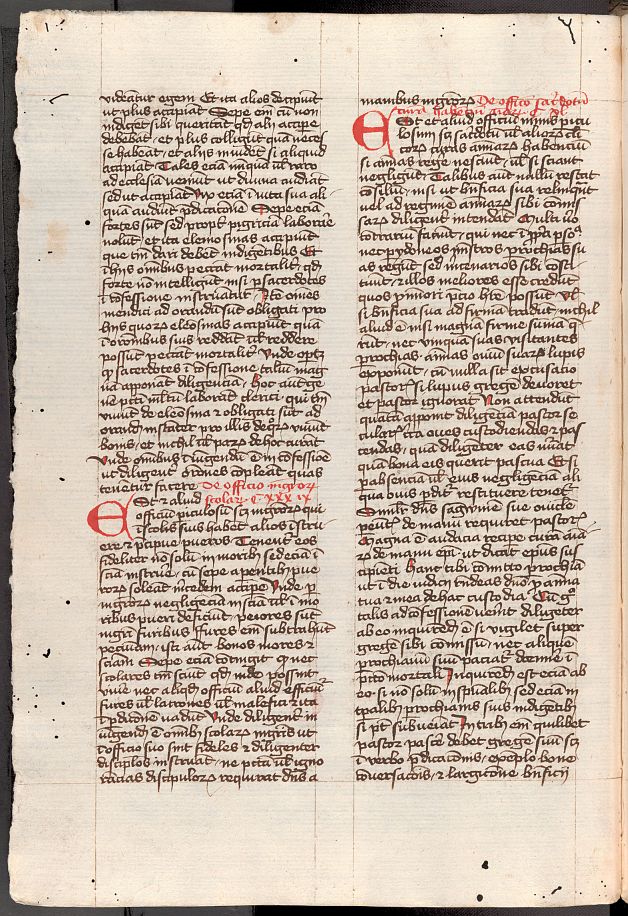 videantur egeni Et ita alios decipiunt
ut plus accipiant Sepe enim cum non
indiget sibi queritat quod alii accipere
debebant et plus colligit quam necesse
se habeant et aliis invidet si aliquid
accipiant Tales eciam nunquam vel raro
ad ecclesiam veniunt ut divina audiant
sed ut accipiant eciam in vita sua ali
quam audiunt predicacionem Sepe eciam
sed propter pigriciam laborare
nolunt et ita elemosinas accipiunt
que tantum dari debent indigentibus Et
in hiis omnibus peccant mortaliter quod
forte non intelligunt nisi per sacerdotes
in confessione instruantur Item omnes
mendici ad orandum sunt obligati pro
hiis quorum elemosinas accipiunt quam
in orationibus suis reddunt vel reddere
possunt peccant mortaliter Unde oportet
quod sacerdotes in confessione talium mag
nam apponant diligenciam Hoc autem ge
nere peccati multum laborant clerici qui tantum
vivunt de elemosina et obligati sunt ad
orandum instanter pro illis de quorum vivunt
bonis et nichil vel parum de hoc curant
Unde omnibus iniungendum est in confessione
ut diligenter oraciones compleant quas
tenentur facere De officio magistrorum
Est et aliud scolarium C xxxix
officium periculosum scilicet magistrorum qui
in scolis suis habent alios instru
ere et precipue pueros Tenentur eos
fideliter non solum in moribus sed eciam in
sciencia instruere cum sepe a parentibus pue
rorum soleant mercedem accipere Unde per
magistrorum negligenciam in sciencia vel in mo
ribus pueri deficiunt peiores sunt
magistri furibus fures enim subtrahunt
pecuniam isti autem bonos mores et
scienciam Sepe eciam contingit quod nec
scolares sciunt quod inde possint
vivere nec aliquod officium aliud efficiuntur
fures vel latrones vel malefici et ita
in perdicionem vadunt Unde diligenter in
iungendum est omnibus scolarum magistris ut
in officio suo sint fideles et diligenter
discipulos instruant ne peccata vel igno
rancias discipulorum requirat dominus a
manibus magistrorum De officio sacerdotum
curam habencium animarum C xl
Est et aliud officium nimis pericu
losum scilicet sacerdotum vel aliorum cleri
corum curas animarum habencium
si animas regere nesciunt vel si sciant
negligunt Talibus autem nullum restat
consilium nisi ut beneficia sua relinquant
vel ad regimen animarum sibi commis
sarum diligenter intendant Multi vero
contrarium faciunt qui nec in propria persona
nec per ydoneos ministros parrochias su
as regunt sed mercenarios sibi consti
tuunt et illos meliores esse credunt
quos pro minori precio habere possunt vel
si beneficia sua ad firmam tradunt nichil
aliud est nisi magna firme summa que
runt nec unquam suas visitantes
parrochias animas ovium suarum lupis
exponunt cum nulla sit excusacio
pastoris si lupus gregem devoret
et pastor ignorat Non attendunt
quantam apponit diligenciam pastor se
cularium circa oves custodiendas et pas
cendas quam diligenter eas
quam bona eis querit pascua Et si
per absenciam vel eius negligenciam ali
qua ovis perdatur restituere tenetur
Similiter dominus sagwinem sue ovicule
pereuntis de manu requiret pastorum
Magna est audacia recipere curam ani
marum de manu episcopi ut dicat episcopus sus
cipienti Hanc tibi committo parrochiam
ut in die iudicii respondeas domino pro anima
tua et mea de hac custodia Cum ergo
talis ad confessionem venerit diligenter
ab eo inquirendum est si vigilet super
gregem sibi commissum nec aliquem
parrochianum suum paciatur dormire in
peccato mortali Inquirendum est eciam ab
eo si non solum in spiritualibus sed eciam in
temporalibus parrochianis suis indigentibus
si potest subveniat In tribus enim quilibet
pastor pascere debet gregem suum scilicet
in verbo predicacionis exemplo bone
conversacionis et largicione beneficii